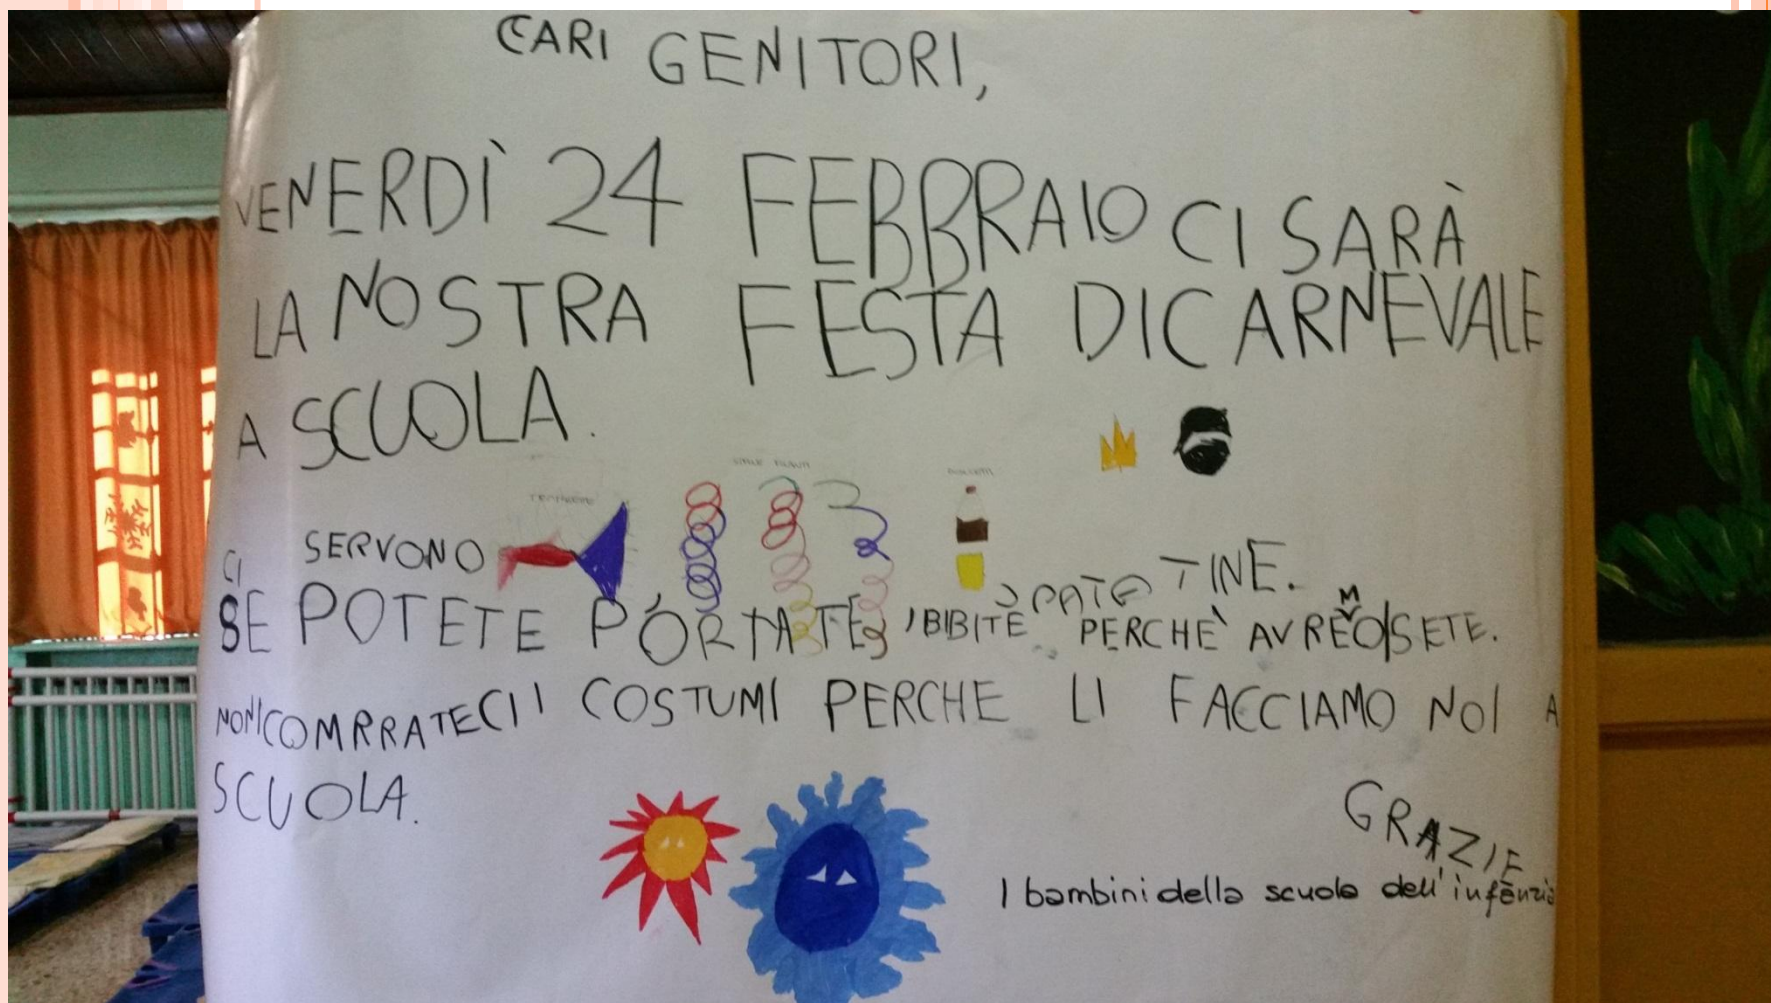 CARI GENITORI,
VENERDÌ 24 FEBBRAIO CI SARÀ
LA NOSTRA FESTA DI CARNEVALE
A SCUOLA.
CI SERVONO
PATATINE.
SE POTETE PORTATE BIBITE PERCHÈ AVREMO SETE.
NON COMRRATECI I COSTUMI PERCHE LI FACCIAMO NOI A
SCUOLA.
GRAZIE
I bambini della scuola dell'infanzia